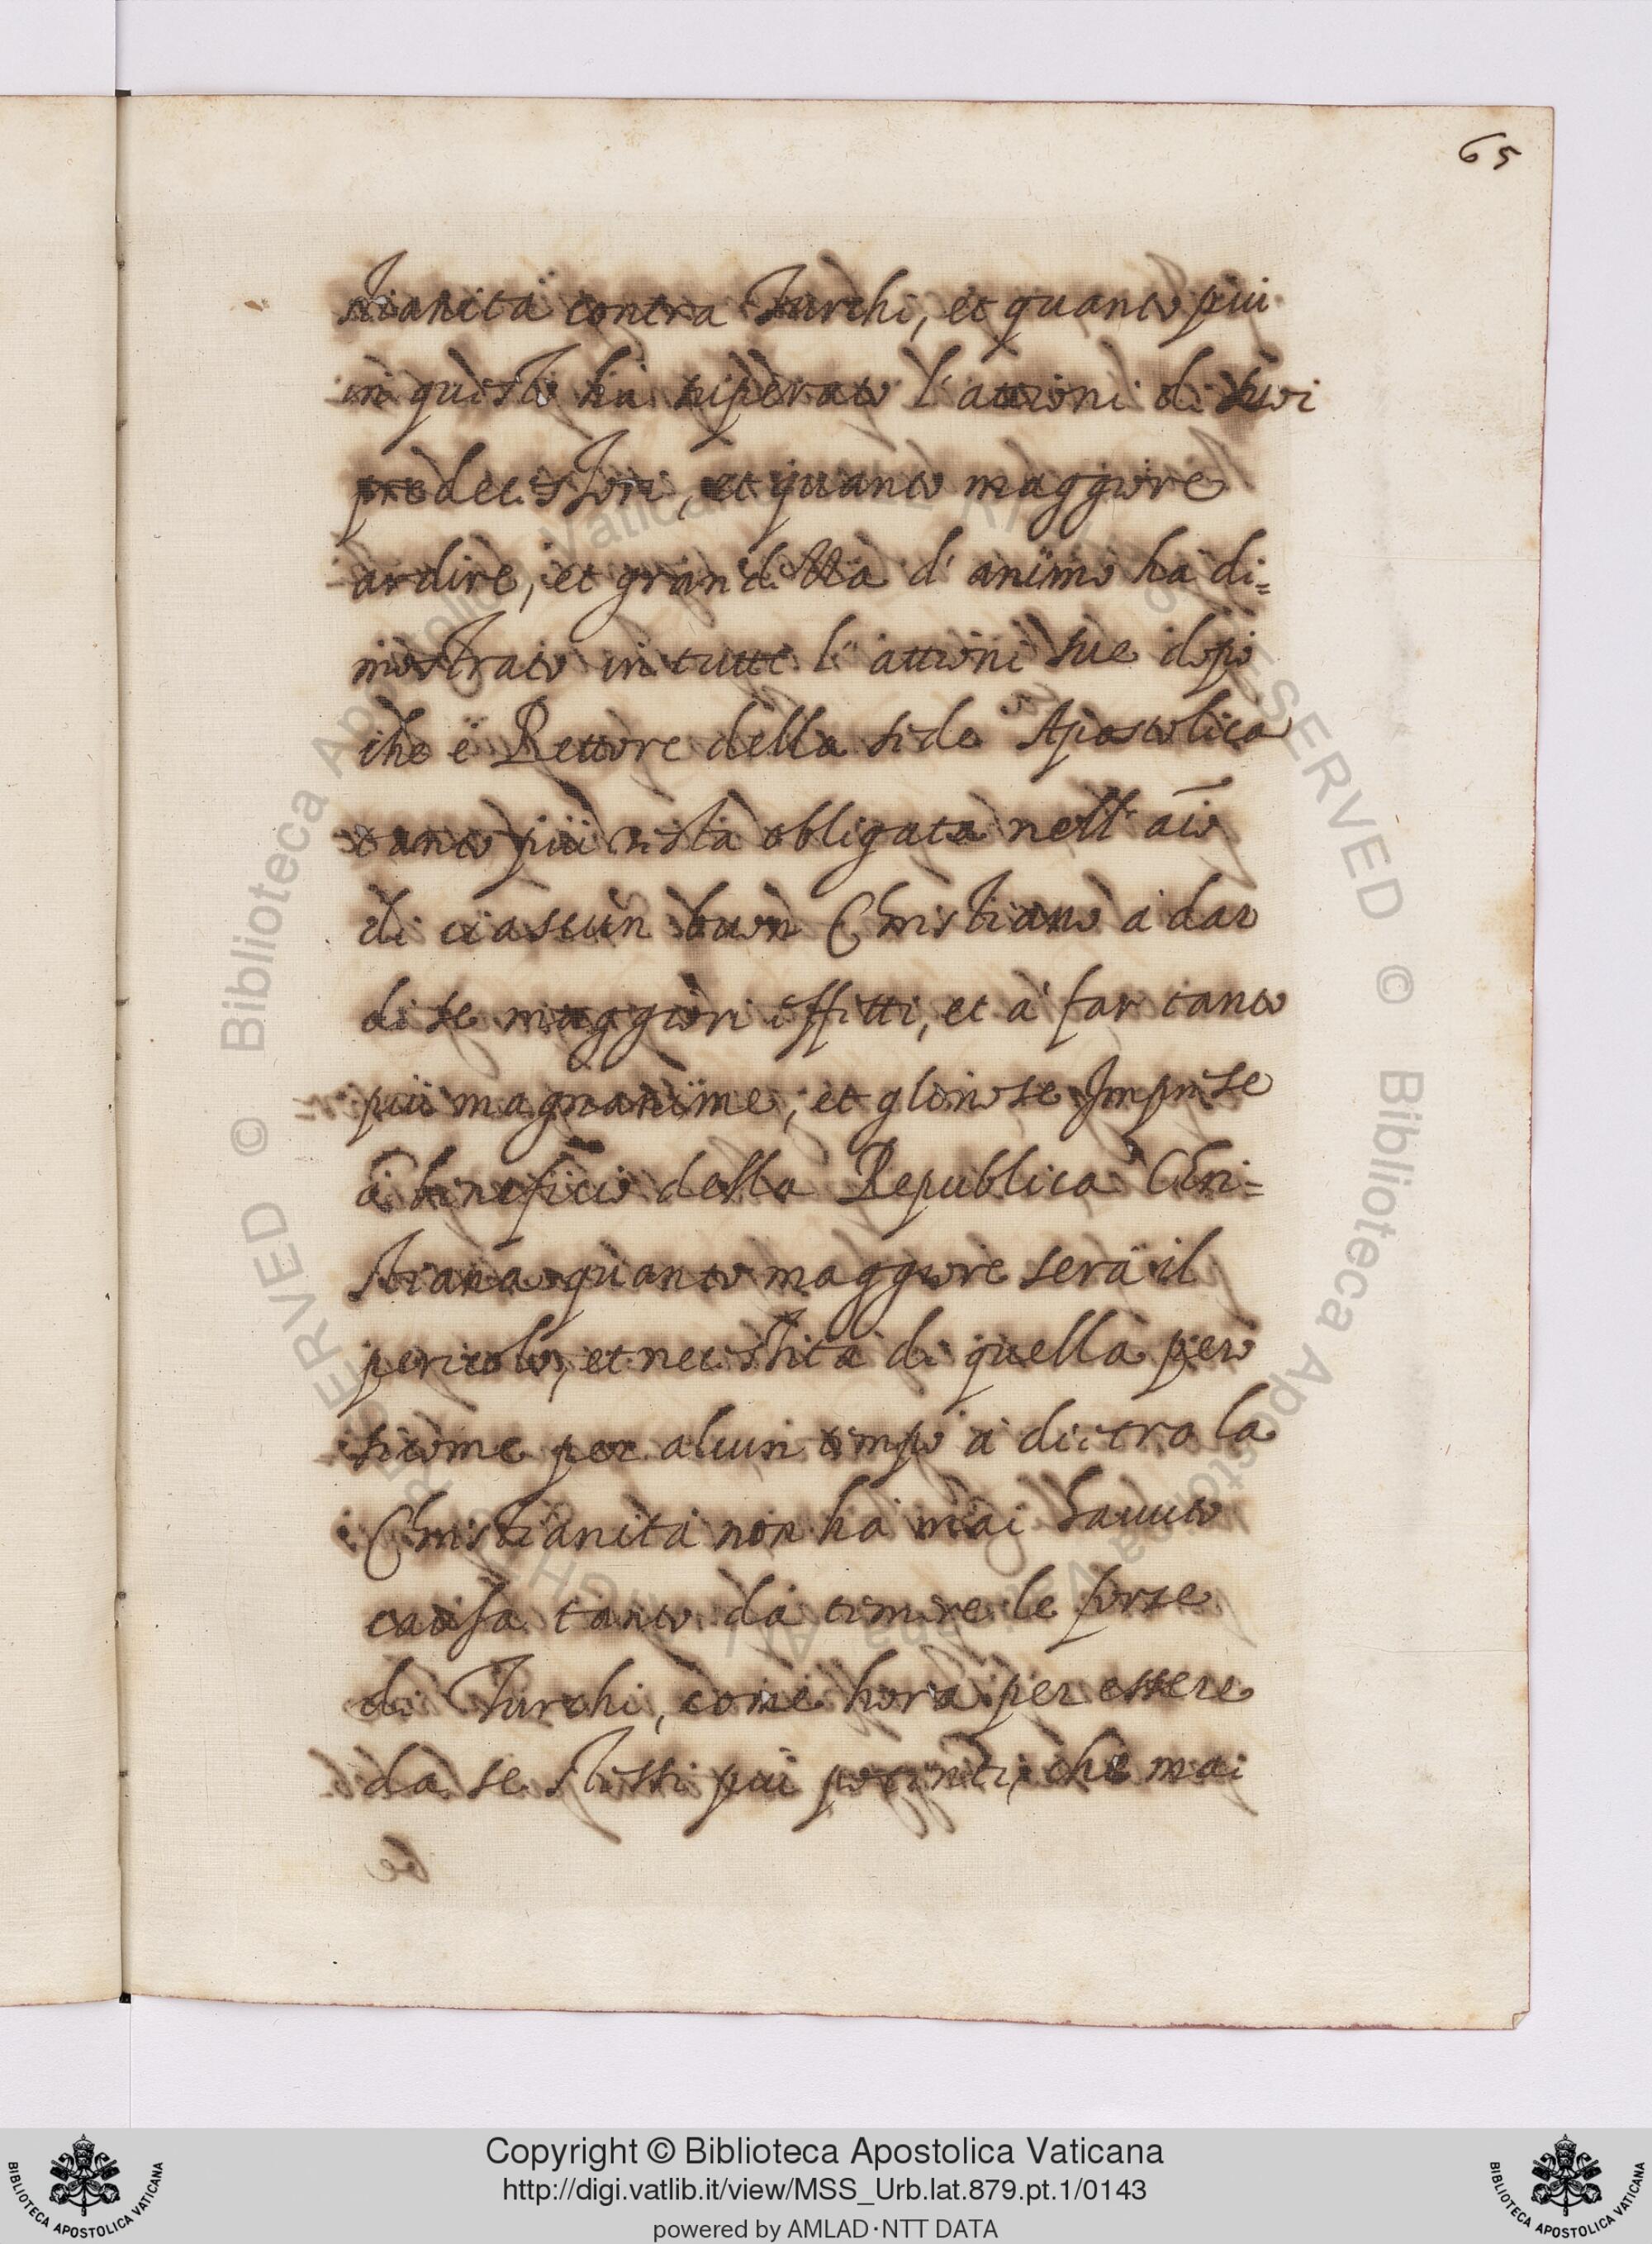 65
stianità contra Turchi, et quanto più
in questo ha superato l'attioni di suoi
predecessori, et quanto maggiore
ardire, et grandezza d'animo ha di=
mostrato in tutte l'attioni sue dopò
che è Rettore della sede Apostolica
tanto più resta obligata nell' aīo
di ciascun buon Christiano à dar
di se maggiori effetti, et à far tanto
più magnanime, et gloriose Imprese
à beneficio della Republica Chri=
stiana quanto maggiore serà il
pericolo, et necessità di quella però
sicome per alcun tempo à dietro la
Christianità non ha mai hauuto
causa tanto da temere le forze
di Turchi, come hora per essere
da se stessi più potenti, che mai
Copyright © Biblioteca Apostolica Vaticana
http://digi.vatlib.it/view/MSS_Urb.lat.879.pt.1/0143
powered by AMLAD·NTT DATA
BIBLIOTECA APOSTOLICA VATICANA
BIBLIOTECA APOSTOLICA VATICANA